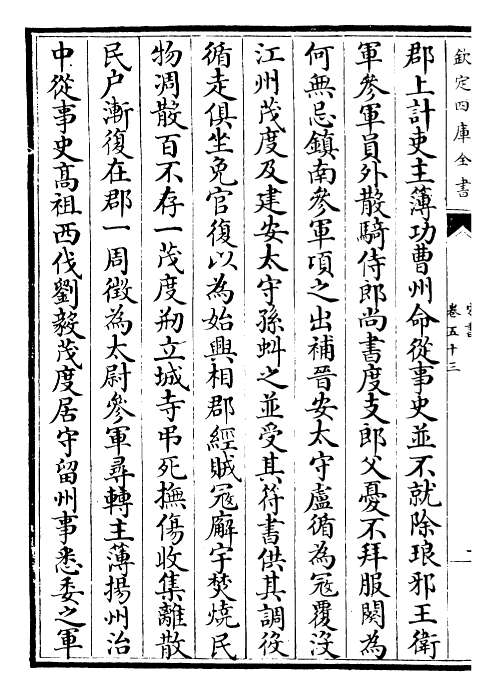 欽定四庫全書
宋書
卷五十三
郡上計吏主薄功曹州命從事史並不就除琅邪王衛
軍參軍員外散騎侍郎尚書度支郎父憂不拜服闋為
何無忌鎮南參軍頃之出補晉安太守盧循為冦覆沒
江州茂度及建安太守孫蚪之並受其符書供其調役
循走俱坐免官復以為始興相郡經賊冦廨宇焚燒民
物凋散百不存一茂度刱立城寺弔死撫傷收集離散
民户漸復在郡一周徴為太尉參軍尋轉主薄揚州治
中從事史髙祖西伐劉毅茂度居守留州事悉委之軍